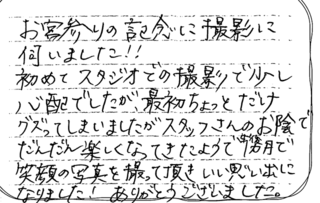 お宮参りの記念に撮影に
伺いました!!
初めてスタジオでの撮影で少し
心配でしたが、最初ちょっとだけ
グズってしまいましたがスタッフさんのお陰で
だんだん楽しくなってきたようで
笑顔の写真を撮って頂きいい思い出に
なりました! ありがとうございました。